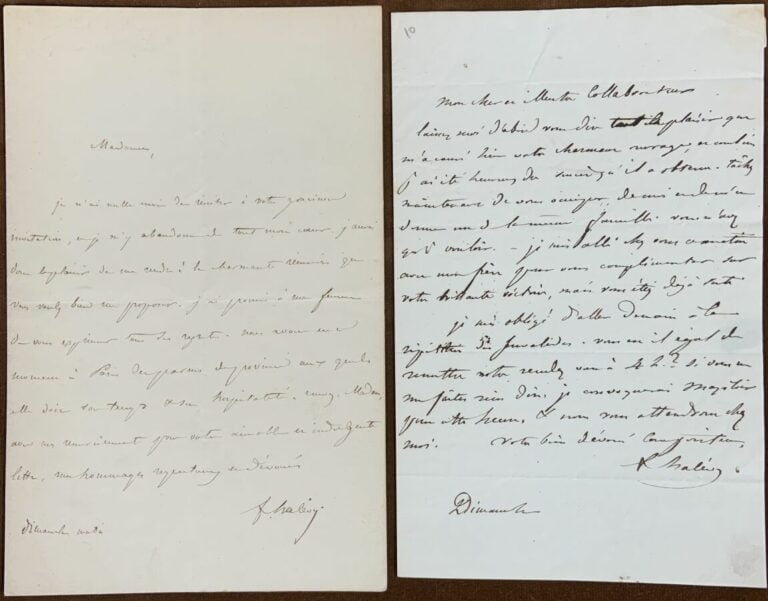 Madame,
je n'ai nulle envie de résister à votre gracieuse
invitation, et je m'y abandonne de tout mon coeur. j'aurai
donc le plaisir de me rendre à la charmante réunion que
vous voulez bien me proposer. j'ai promis à ma femme
de vous exprimer tous ses regrets. nous avons en ce
moment à Paris des parens de province aux quels
elle doit son temps & son hospitalité. Madame,
avec mes remerciements pour votre aimable et indulgente
lettre, mes hommages respectueux et dévoués
f. halévy
dimanche matin
10
Mon cher et illustre Collaborateur
laissez moi d'abord vous dire tout le plaisir que
m'a causé hier votre charmant ouvrage, et combien
j'ai été heureux du succès qu'il a obtenu. tâchez
maintenant de vous
d'une de la même famille. vous n'avez
qu'à vouloir. - je suis allé chez vous ce matin
avec mon frère pour vous complimenter sur
votre brillante victoire, mais vous étiez déjà sorti
je suis obligé d'aller demain à la
des Invalides. vous est il égal de
remettre notre rendez vous à 4 h? si vous ne
me faites rien dire, je convoquerai
pour cette heure, & nous vous attendrons chez
moi. Votre bien dévoué Compositeur,
f. halévy.
Dimanche